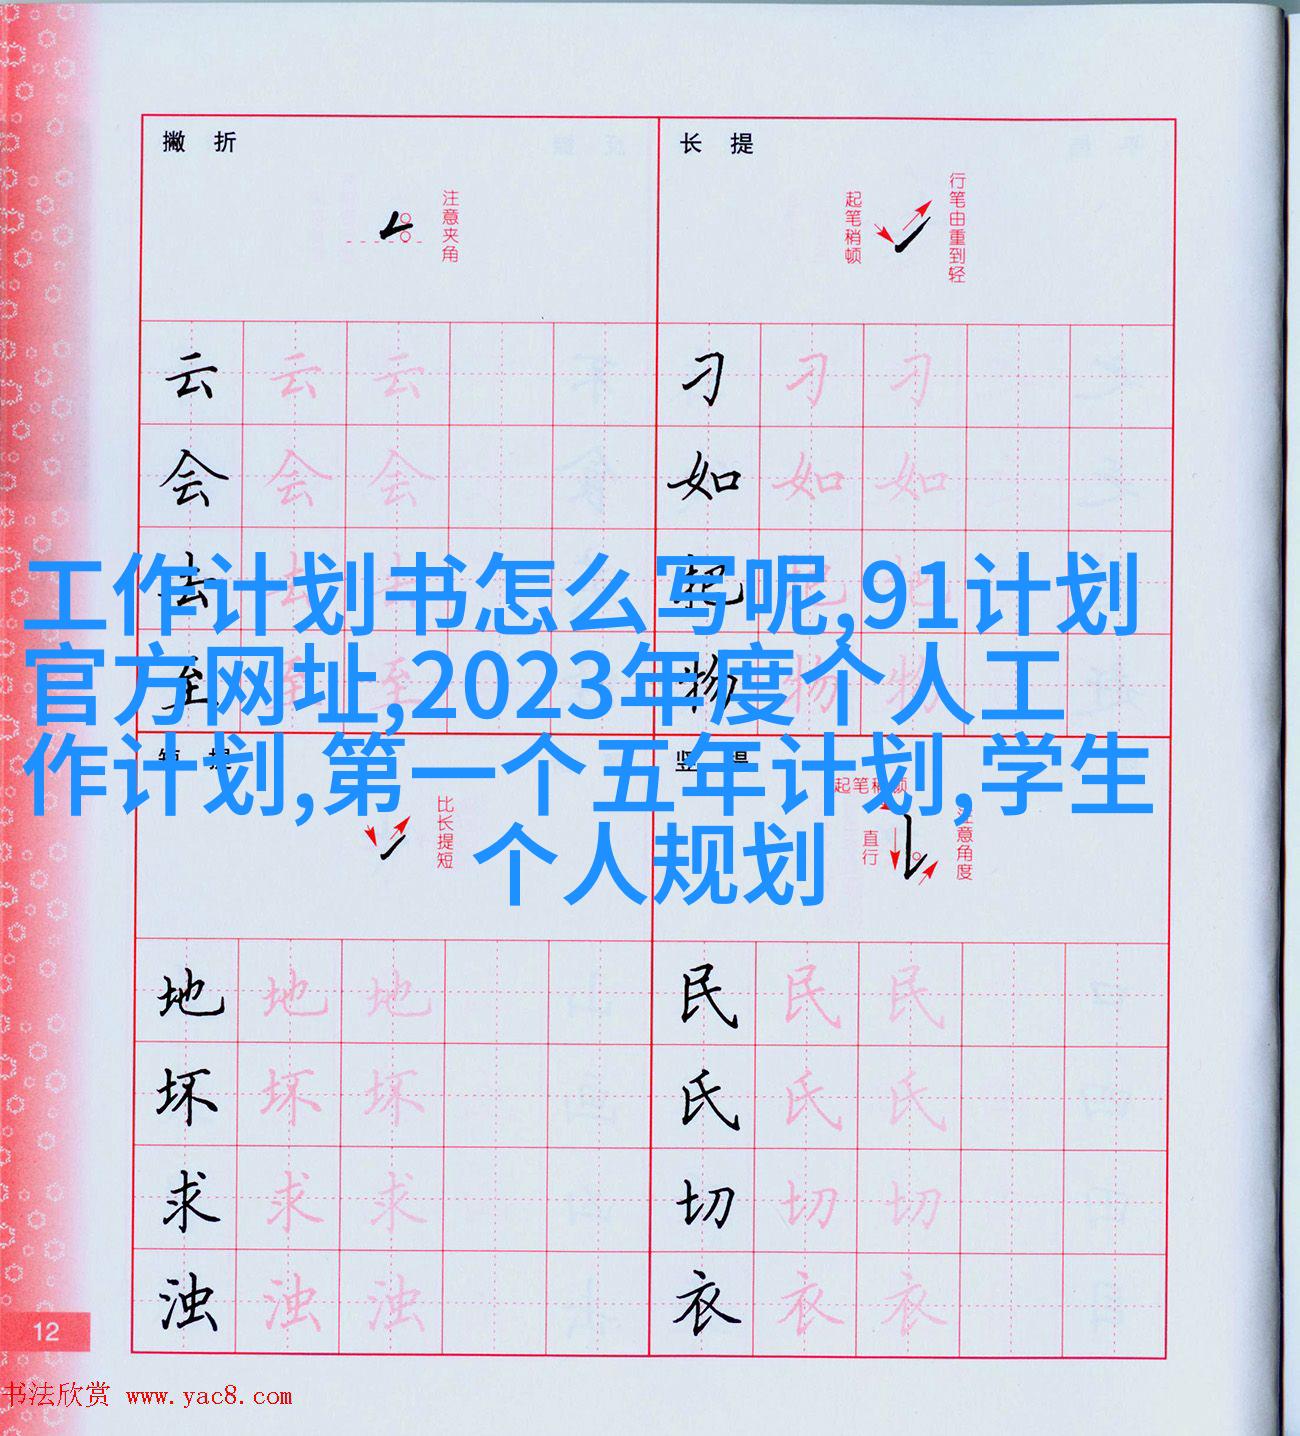 撇 折
注意夹角
云 云 云
会 会 会
去 去 去
至 至 至
长 提
起笔稍顿
行笔由重到轻
刁 刁 刁
如 如 如
把 把 把
物 物 物
工作计划书怎么写呢,91计划
官方网址,2023年度个人工
作计划,第一个五年计划,学生
个人规划
短 提
比长提短
地 地 地
坏 坏 坏
求 求 求
浊 浊 浊
竖 提
起笔稍顿
直行
注意角度
民 民 民
氏 氏 氏
切 切 切
衣 衣 衣
12
书法欣赏 www.yac8.com